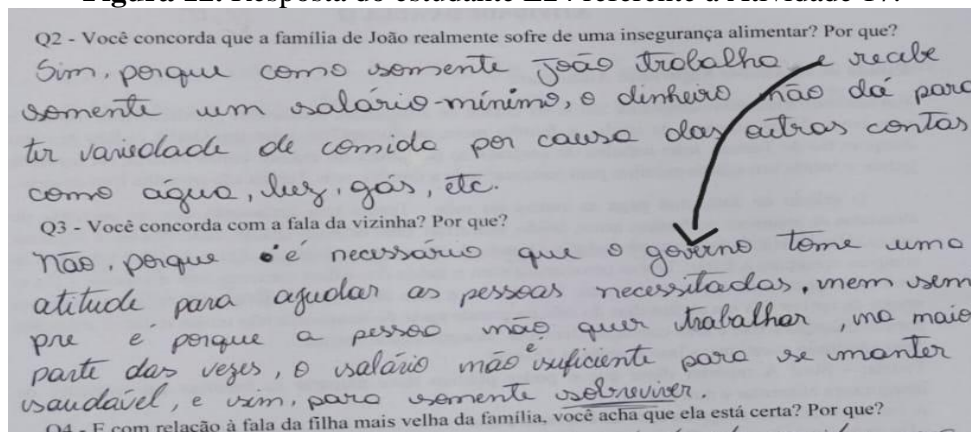 Q2 - Você concorda que a família de João realmente sofre de uma insegurança alimentar? Por que?
Sim, porque como somente João trabalha e recebe
somente um salário-mínimo, o dinheiro não dá para
ter variedade de comida por causa das outras contas
como água, luz, gás, etc.
Q3 - Você concorda com a fala da vizinha? Por que?
Não, porque é necessário que o governo tome uma
atitude para ajudar as pessoas necessitadas, nem sem
pre é porque a pessoa não quer trabalhar, na maio
parte das vezes, o salário não é suficiente para se manter
saudável, e sim, para somente sobreviver.
Q4 - E com relação à fala da filha mais velha da família, você acha que ela está certa? Por que?